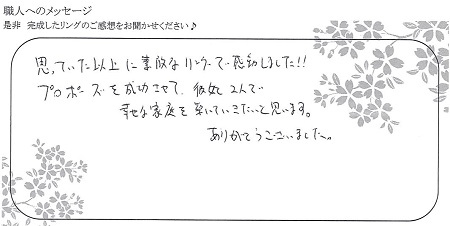 職人へのメッセージ
是非 完成したリングのご感想をお聞かせください♪
思っていた以上に素敵なリングで感動しました!!
プロポーズを成功させて、彼女と2人で
幸せな家庭を築いていきたいと思います。
ありがとうございました。